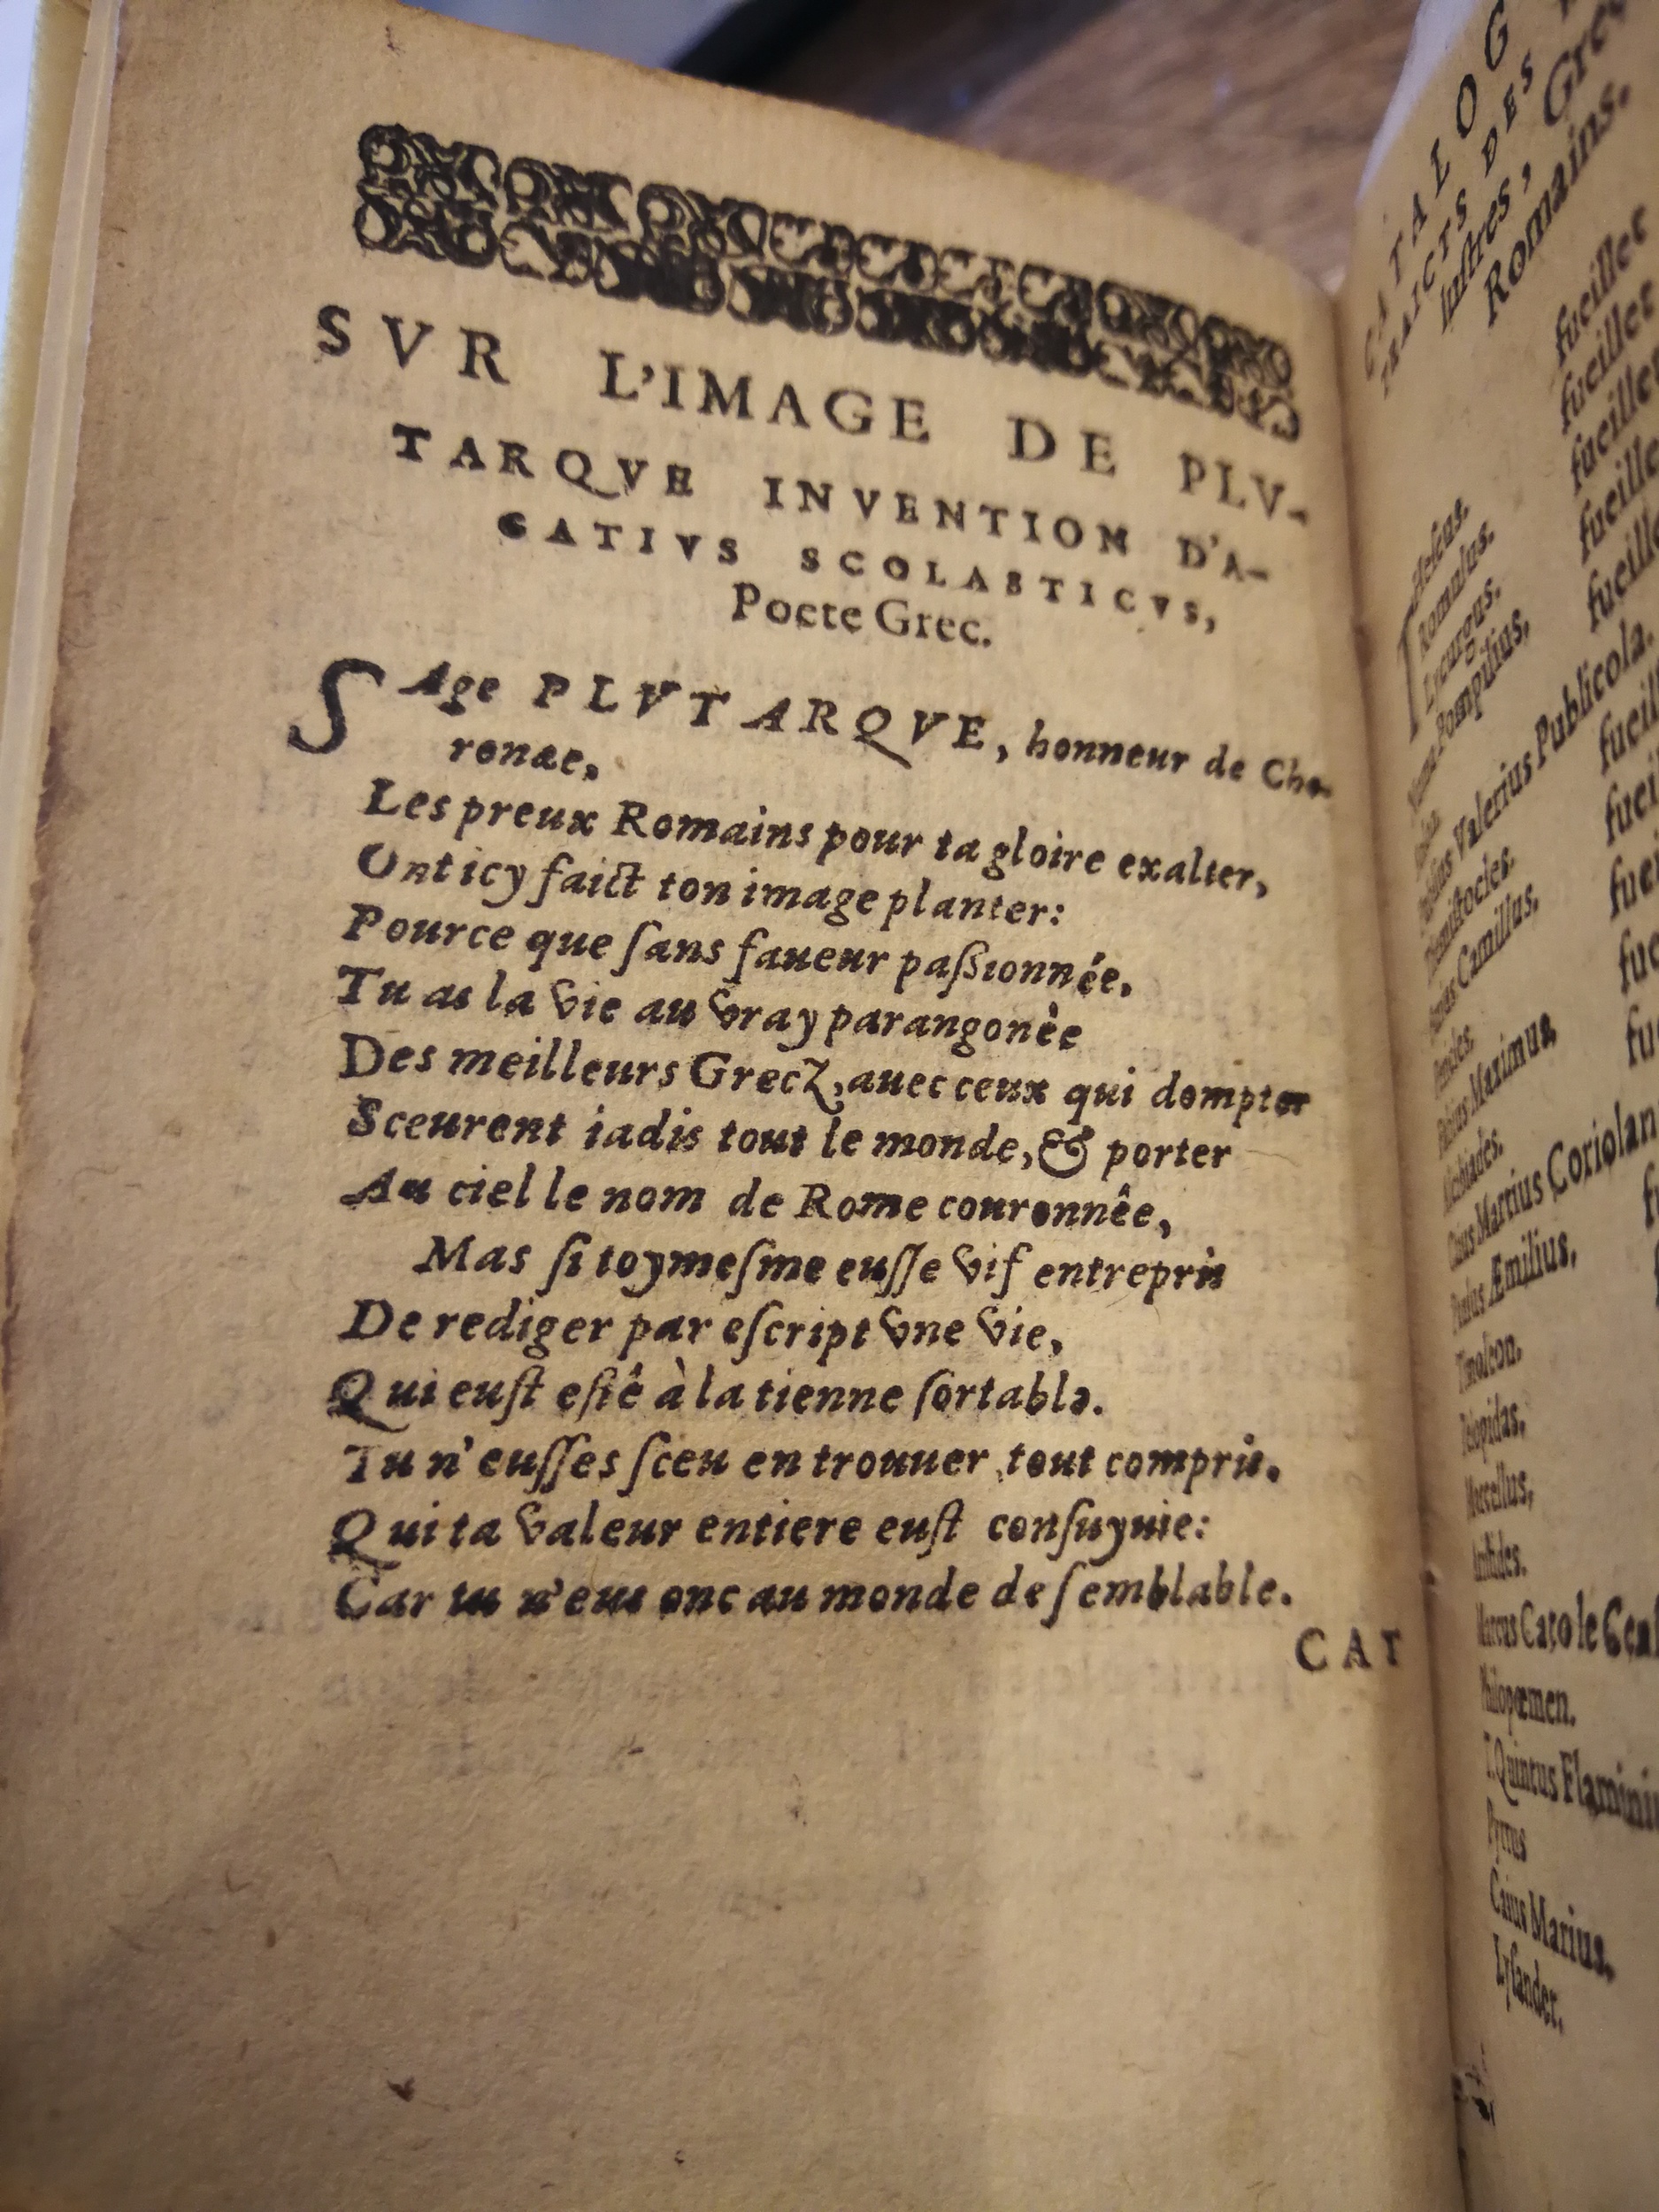 SVR L'IMAGE DE PLV-
TARQVE INVENTION D'A-
GATIVS SCOLASTICVS,
Poete Grec.
SAge PLVTARQVE, honneur de Che-
ronæe,
Les preux Romains pour ta gloire exalter,
Ont icy faict ton image planter:
Pource que ſans faueur paſsionnée,
Tu as la vie au vray parangonèe
Des meilleurs Grecz, auec ceux qui dompter
Sceurent iadis tout le monde, & porter
Au ciel le nom de Rome couronnêe,
Mas ſi toymeſme euſſe vif entrepris
De rediger par eſcript vne vie,
Qui euſt eſtê à la tienne ſortable.
Tu n'euſſes ſceu en trouuer tout compris.
Qui ta valeur entiere euſt conſuyuie:
Car tu n'eus onc au monde de ſemblable.
CAT
CATALOG
TRAICTS DES
luſtres, Grec
Romains.
Romulus. fueillet
Lycurgus. fueillet
Pompilius.
Valerius Publicola.
Themiſtocles.
Camillus.
Maximus,
Martius Coriolan
Æmilius,
Timoleon.
Pelopidas,
Marcellus,
Ariſtides.
Marcus Cato le Cenſ
Philopœmen.
T. Quintus Flaminiu
Pyrrus
Caius Marius,
Lyſander.